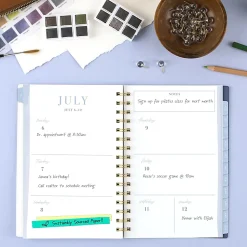 JULY
NOTES
Sign up for pilates class for next month
Sunday
6
Dr. Appointment @ 8:30am
Wednesday
9
Monday
7
Jamie's birthday!
Call realtor to schedule meeting
Thursday
10
Rosie's soccer game @ 11am
Tuesday
8
Friday
11
Saturday
12
Dinner with Elijah